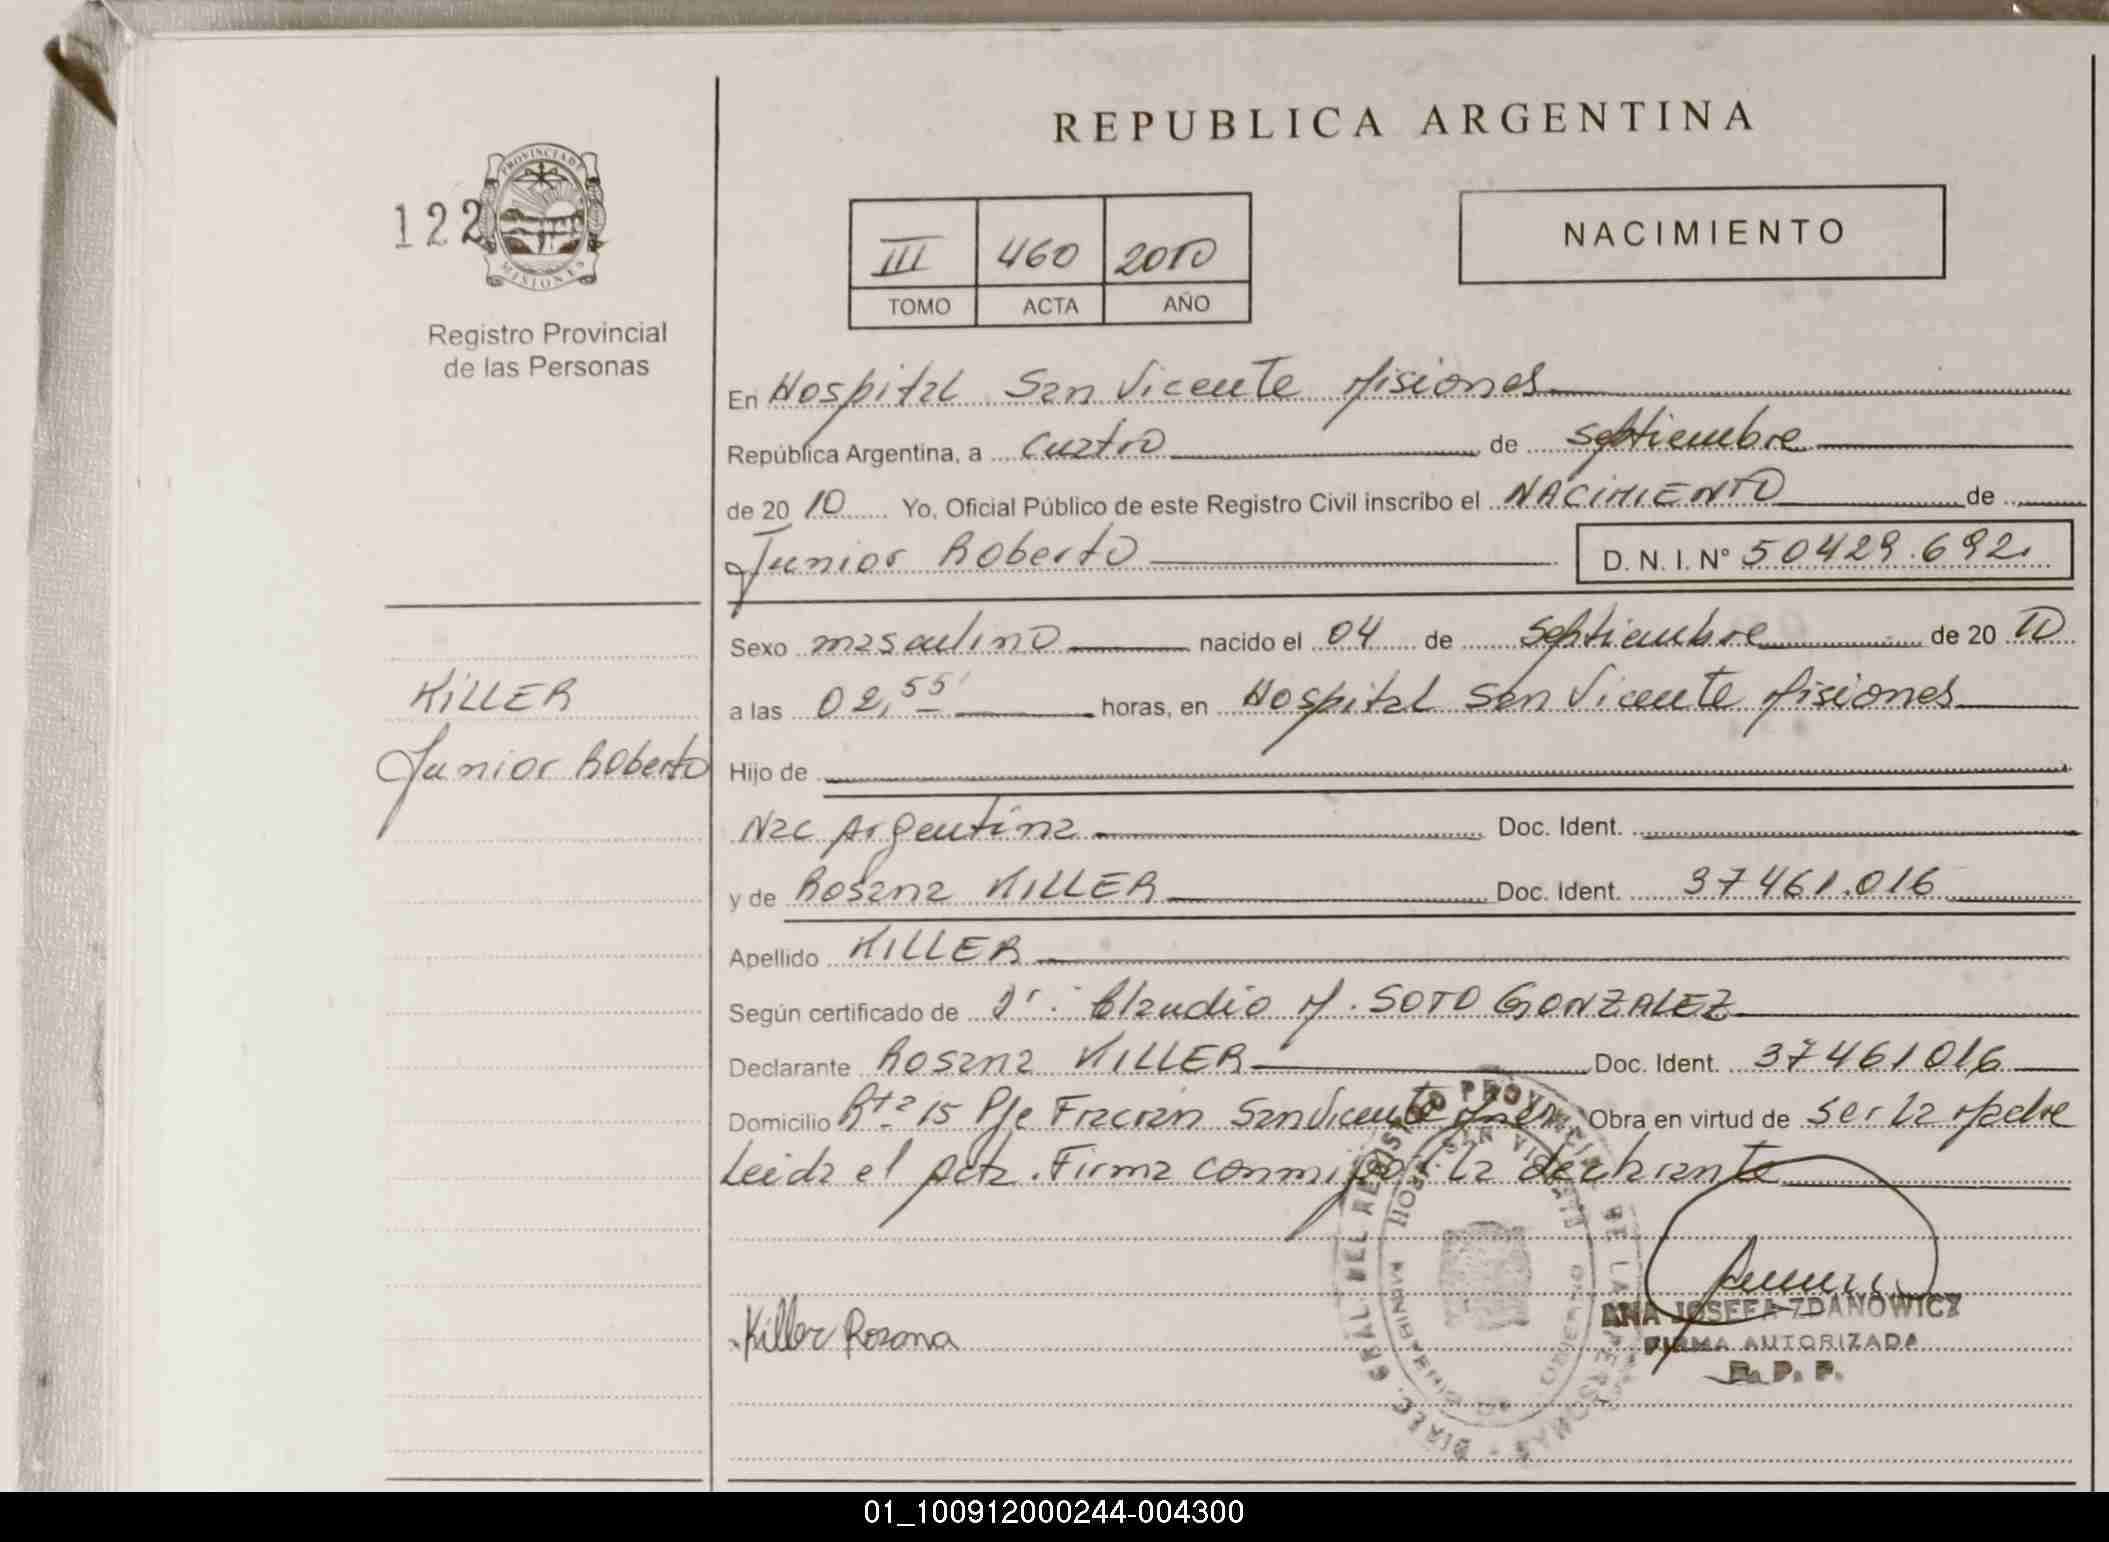 REPUBLICA ARGENTINA
122
PROVINCIA DE
MISIONES
Registro Provincial
de las Personas
III 460 2010
TOMO ACTA AÑO
NACIMIENTO
En Hospital San Vicente Misiones
República Argentina, a cuatro de septiembre
de 2010 Yo, Oficial Público de este Registro Civil inscribo el NACIMIENTO de
Junior Roberto D. N. I. N° 50429.692.
Sexo masculino nacido el 04 de Septiembre de 2010
KILLER
Junior Roberto
a las 02,55' horas, en Hospital San Vicente Misiones
Hijo de
Nac Argentina Doc. Ident.
y de Rosana KILLER Doc. Ident. 37461.016
Apellido KILLER
Según certificado de Dr. Claudio M. SOTO GONZALEZ
Declarante Rosana KILLER Doc. Ident. 37461016
Domicilio Rta 15 Pje Fracran San Vicente Mnes Obra en virtud de ser la Madre
Leida el Acta. Firma conmigo la declarante
Killer Rosana
DIREC. GRAL. DEL REGISTRO PROVINCIAL DE LAS PERSONAS
HOSP. SAN VICENTE
ANA JOSEFA ZDANOWICZ
FIRMA AUTORIZADA
R. P. P.
01_100912000244-004300